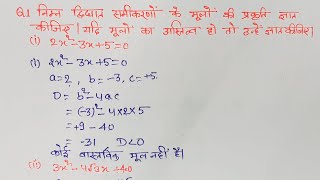 Q.1 निम्न द्विघात समीकरणों के मूलों की प्रकृति ज्ञात
कीजिए। यदि मूलों का अस्तित्व हो तो उन्हें ज्ञात कीजिए।
(i) 2x²-3x+5=0
(i) 2x²-3x+5=0
a=2, b=-3, c=+5
D= b²-4ac
=(-3)²-4×2×5
=+9-40
=-31 D<0
कोई वास्तविक मूल नहीं है।
(ii) 3x²-4√3x+4=0